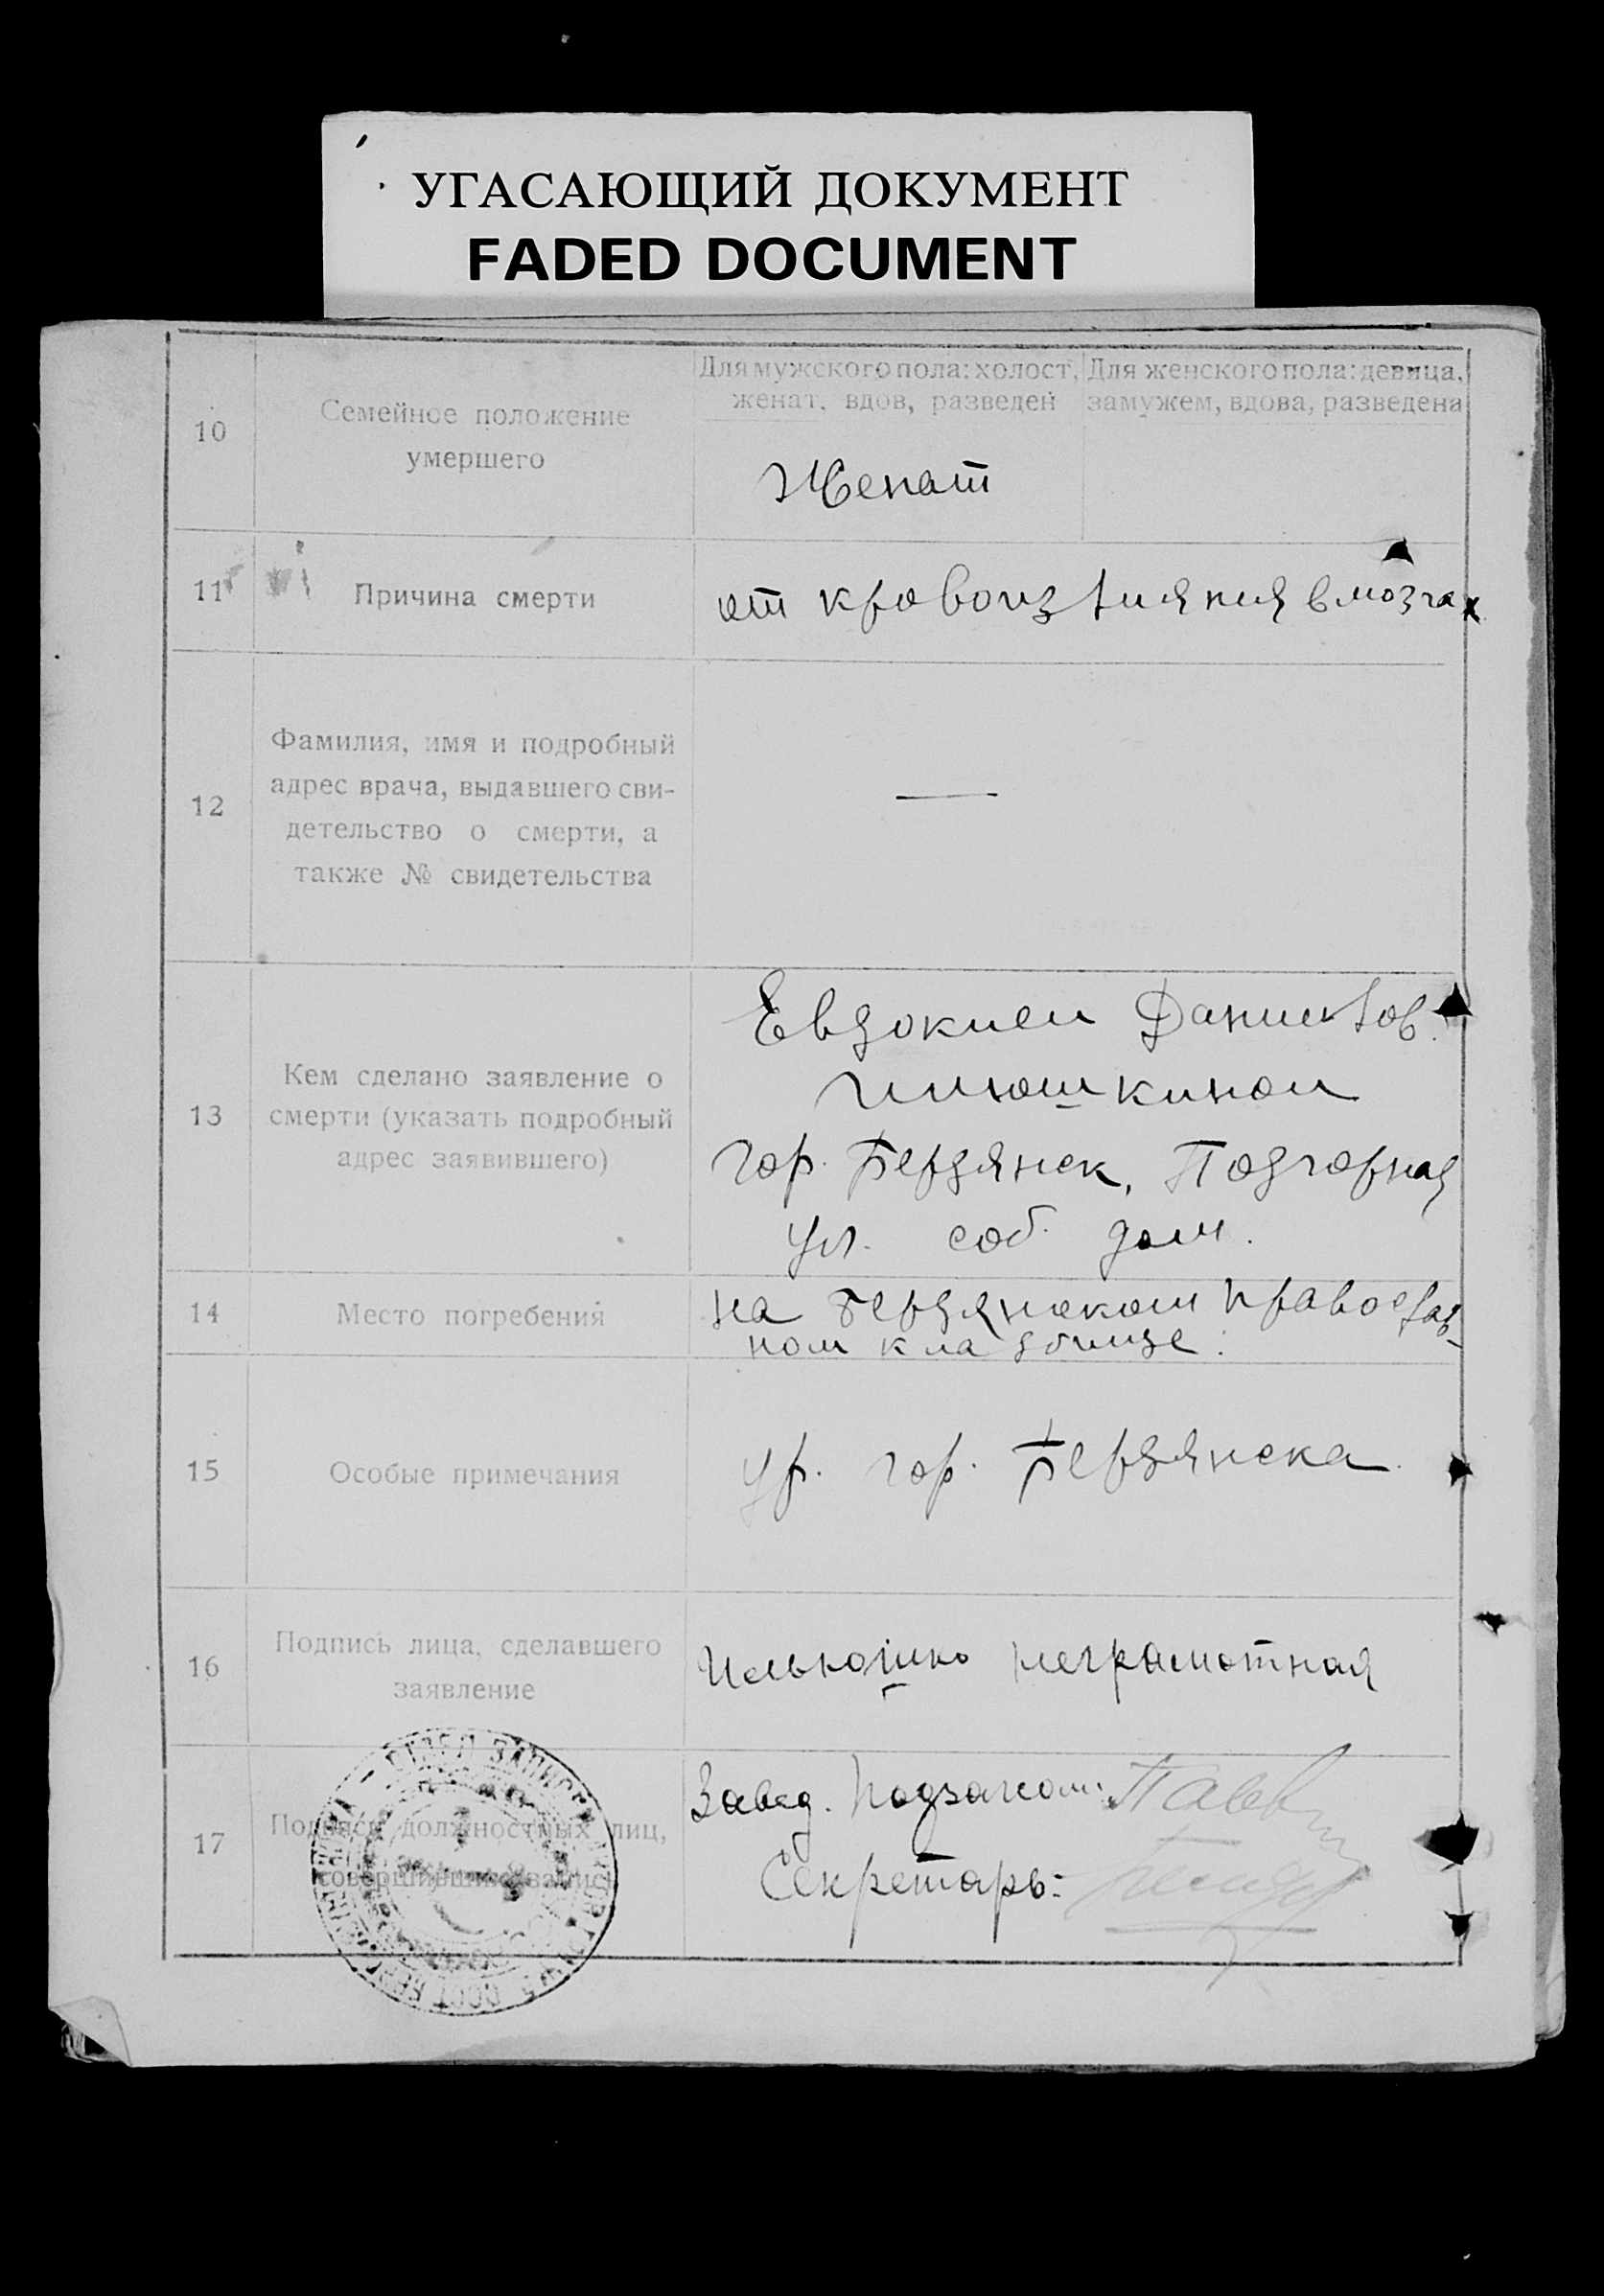 УГАСАЮЩИЙ ДОКУМЕНТ
FADED DOCUMENT
10
Семейное положение
умершего
Для мужского пола: холост,
женат, вдов, разведен
Для женского пола: девица,
замужем, вдова, разведена
Женат
11
Причина смерти
от кровоизлияния в мозгах
12
Фамилия, имя и подробный
адрес врача, выдавшего сви-
детельство о смерти, а
также № свидетельства
—
13
Кем сделано заявление о
смерти (указать подробный
адрес заявившего)
Евдокией Данилов.
Илюшкиной
гор. Бердянск, Подгорная
ул. соб. дом.
14
Место погребения
на Бердянском православ-
ном кладбище.
15
Особые примечания
Ур. гор. Бердянска.
16
Подпись лица, сделавшего
заявление
неграмотная
17
Подписи должностных лиц,
совершивших запись
Завед. Подзагсом:
Секретарь: